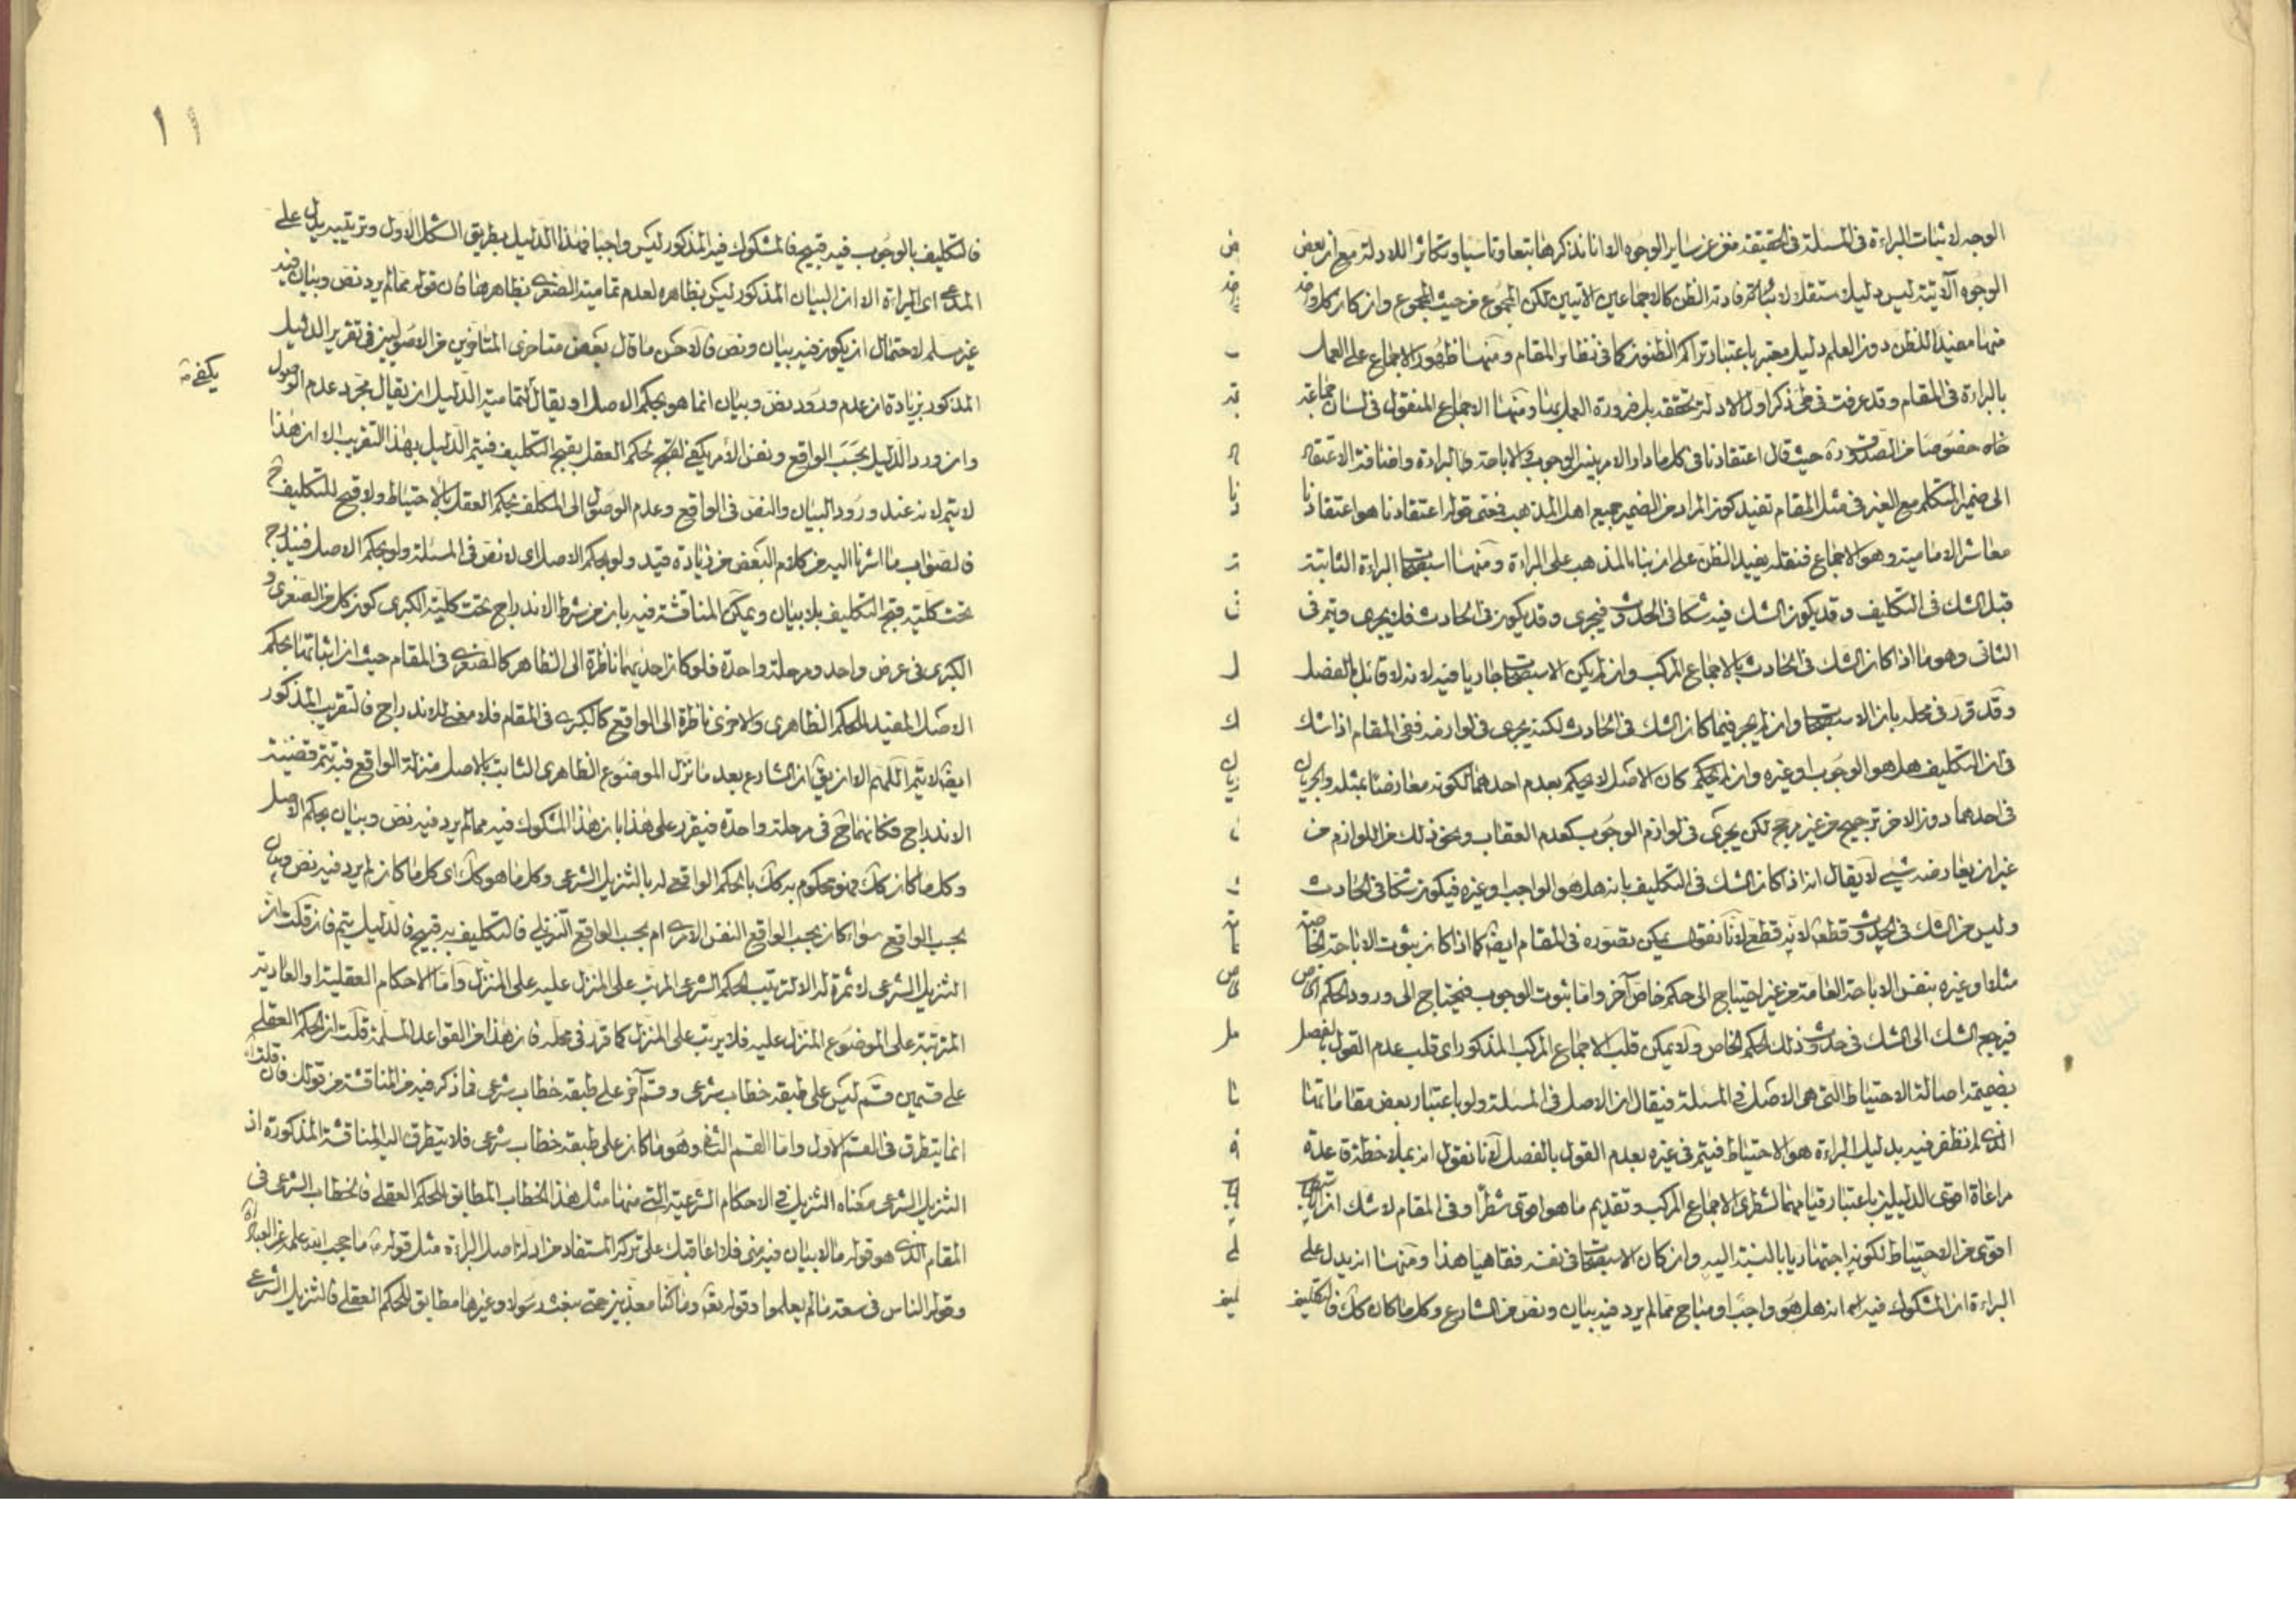 الوجه لاثبات البراءة فى المسئلة فى الحقيقة مغن عن ساير الوجوه الا انا نذكرها تبعا وتاسيا وتكاثرا للادلة مع ان بعض
الوجوه الآتية ليس دليلا مستقلا لافادته الظن كالاجماعين الآتيين لكن المجموع من حيث المجموع وان كان كل واحد
منها مفيدا للظن دون العلم دليل معتبر باعتبار تراكم الظنون كما فى نظاير المقام ومنها ظهور الاجماع على العمل
بالبراءة فى المقام وقد عرفت فى طى ذكر اول الادلة تحققه بل ضرورة العمل بها ومنها الاجماع المنقول فى لسان جماعة
خاه خصوصا من الصدوق ره حيث قال اعتقادنا فى كل ما دار الامر بين الوجوب والاباحة والبراءة واضافة الاعتقاد
الى ضمير المتكلم مع الغير فى مثل المقام تفيد كون المراد من الضمير جميع اهل المذهب فمعنى قوله اعتقادنا هو اعتقادنا
معاشر الامامية وهو الاجماع فنقله يفيد الظن على ان بناء المذهب على البراءة ومنها استصحاب البراءة الثابتة
قبل الشك فى التكليف وقد يكون الشك فيه شكا فى الحدوث فيجرى وقد يكون فى الحادث فلا يجرى ويتم فى
الثانى وهو ما اذا كان الشك فى الحادث بالاجماع المركب وان لم يكن الاستصحاب جاريا فيه لانه لا قائل بالفصل
وقد قرر فى محله بان الاستصحاب وان لم يجر فيما كان الشك فى الحادث لكنه يجرى فى لوازمه ففى المقام اذا شك
فى ان التكليف هل هو الوجوب او غيره وان لم يحكم كان الاصل لا يحكم بعدم احدهما لكونه معارضا بمثله والجريان
فى احدهما دون الاخر ترجيح من غير مرجح لكن يجرى فى لوازم الوجوب كعدم العقاب ونحو ذلك من اللوازم من
غير ان يعارضه شيئ لا يقال انه اذا كان الشك فى التكليف بانه هل هو الواجب او غيره فيكون شكا فى الحادث
وليس من الشك فى الحدوث قطعا لانه قطعى لانا نقول يمكن تصوره فى المقام ايضا كما اذا كان ثبوت الاباحة الخاصة
مثلا او غيره بنفس الاباحة العامة من غير احتياج الى حكم خاص آخر واما ثبوت الوجوب فيحتاج الى ورود الحكم الخاص
فيرجع الشك الى الشك فى حدوث ذلك الحكم الخاص ولا يمكن قلب الاجماع المركب المذكور اى قلب عدم القول بالفصل
بضميمة اصالة الاحتياط التى هى الاصل فى المسئلة فيقال ان الاصل فى المسئلة ولو باعتبار بعض مقاماتها
الذى لم نظفر فيه بدليل البراءة هو الاحتياط فيتم فى غيره بعدم القول بالفصل لانا نقول انه بملاحظة قاعدة
مراعاة اقوى الدليلين باعتبار قيامهما لشطرى الاجماع المركب وتقديم ما هو اقوى شطرا وفى المقام لا شك ان الاستصحاب
اقوى من الاحتياط لكونه اجتهاديا بالنسبة اليه وان كان الاستصحاب فى نفسه فقاهيا هذا ومنها انه يدل على
البراءة ان المشكوك فيه انه هل هو واجب او مباح مما لم يرد فيه بيان ونص من الشارع وكل ما كان كك فالتكليف
فالتكليف بالوجوب فيه قبيح فالمشكوك فيه المذكور ليس واجبا فهذا الدليل بطريق الشكل الاول وترتيبه يدل على
المدعى اى البراءة الا ان البيان المذكور ليس بظاهره لعدم تمامية الصغرى بظاهرها فان قوله مما لم يرد نص وبيان فيه
غير مسلم لاحتمال ان يكون فيه بيان ونص فالاحسن ما قال بعض متاخرى المتاخرين من الاصوليين فى تقرير الدليل
المذكور بزيادة ان عدم ورود نص وبيان انما هو بحكم الاصل او يقال لتمامية الدليل ان يقال مجرد عدم الوصول
يكفى
وان ورد الدليل بحسب الواقع ونفس الأمر يكفى لقبح لحكم العقل بقبح التكليف فيتم الدليل بهذا التقريب الا ان هذا
لا يتم لانه عند ورود البيان والنص فى الواقع وعدم الوصول الى المكلف يحكم العقل بالاحتياط ولا قبح للتكليف ح
فالصواب ما اشرنا اليه من كلام البعض من زيادة قيد ولو بحكم الاصل اى لا نص فى المسئلة ولو بحكم الاصل فيندرج
تحت كلية قبح التكليف بلا بيان ويمكن المناقشة فيه بان من شرط الاندراج تحت كلية الكبرى كون كل من الصغرى و
الكبرى فى عرض واحد ومرحلة واحدة فلو كان احديهما ناظرة الى الظاهر كالصغرى فى المقام حيث ان اثباتها بحكم
الاصل المفيد للحكم الظاهرى والاخرى ناظرة الى الواقع كالكبرى فى المقام فلا معنى للاندراج فالتقريب المذكور
ايضا لا يتم اللهم الا ان يق ان الشارع بعد ما نزل الموضوع الظاهرى الثابت بالاصل منزلة الواقع فبه تتم قضية
الاندراج فكانهما ح فى مرحلة واحدة فيقرر على هذا بان هذا المشكوك فيه مما لم يرد فيه نص وبيان بحكم الاصل
وكل ما كان كك فهو محكوم به كك بالحكم الواقعى له بالتنزيل الشرعى وكل ما هو كك اى كل ما كان لم يرد فيه نص وبيان
بحسب الواقع سواء كان بحسب الواقع النفس الامرى ام بحسب الواقع التنزيلى فالتكليف به قبيح فالدليل يتم فان قلت ان
التنزيل الشرعى لا ثمرة له الا ترتيب الحكم الشرعى المرتب على المنزل عليه على المنزل واما الاحكام العقلية او العادية
المترتبة على الموضوع المنزل عليه فلا يرتب على المنزل كما قرر فى محله فان هذا من القواعد المسلمة قلت ان الحكم العقلى
على قسمين قسم ليس على طبقه خطاب شرعى وقسم آخر على طبقه خطاب شرعى فما ذكر فيه من المناقشة من قولك فان قلت اه
انما يتطرق فى القسم الاول واما القسم الثانى وهو ما كان على طبقه خطاب شرعى فلا يتطرق اليه المناقشة المذكورة اذ
التنزيل الشرعى معناه التنزيل فى الاحكام الشرعية التى منها مثل هذا الخطاب المطابق للحكم العقلى فالخطاب الشرعى فى
المقام الذى هو قوله ما لا بيان فيه منى فلا اعاقبك على تركه المستفاد من ادلة اصل البراءة مثل قوله ع ما حجب الله علمه عن العباد اه
وقوله الناس فى سعة ما لم يعلموا وقوله تعالى وما كنا معذبين حتى نبعث رسولا وغيرها مطابق للحكم العقلى فالتنزيل الشرعى